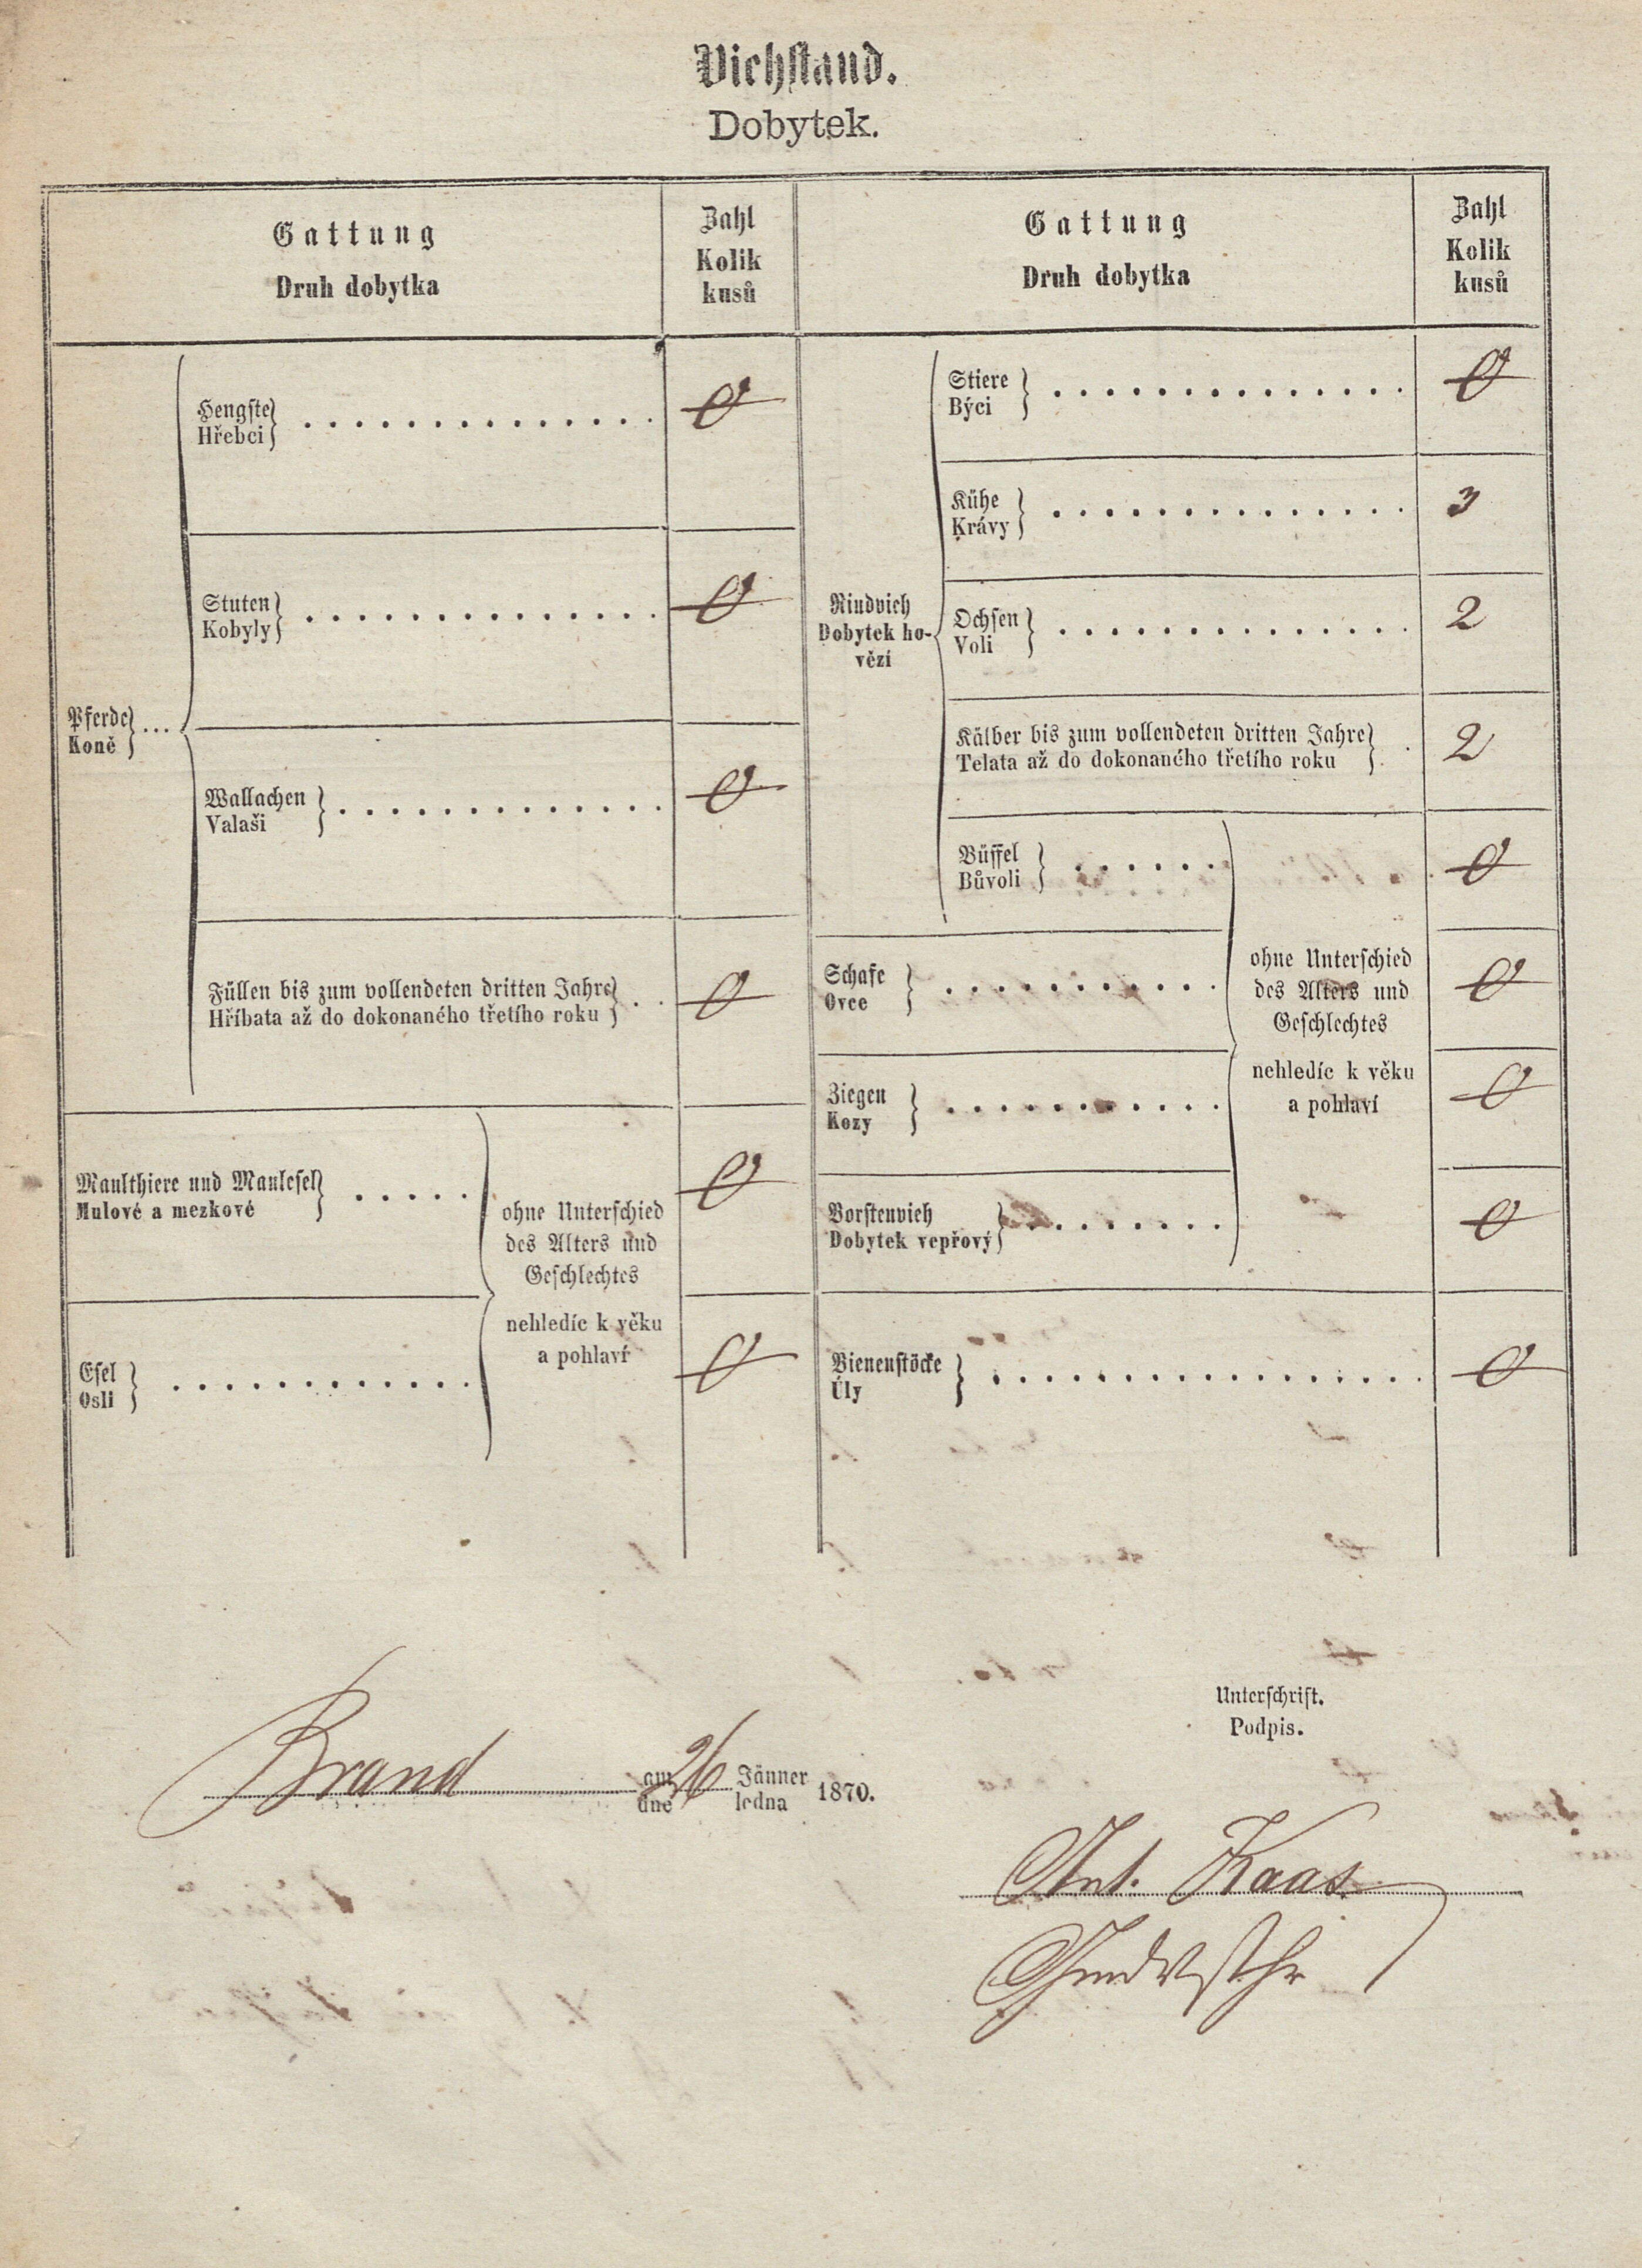 Viehstand.
Dobytek.
Gattung
Druh dobytka
Zahl
Kolik
kusů
Gattung
Druh dobytka
Zahl
Kolik
kusů
Pferde
Koně
Hengste
Hřebci
0
Stuten
Kobyly
0
Wallachen
Valaši
0
Füllen bis zum vollendeten dritten Jahre
Hříbata až do dokonaného třetího roku
0
Maulthiere und Maulesel
Mulové a mezkové
0
Esel
Osli
0
ohne Unterschied
des Alters und
Geschlechtes
nehledíc k věku
a pohlaví
Rindvieh
Dobytek ho-
vězí
Stiere
Býci
0
Kühe
Krávy
3
Ochsen
Voli
2
Kälber bis zum vollendeten dritten Jahre
Telata až do dokonaného třetího roku
2
Büffel
Bůvoli
0
Schafe
Ovce
0
Ziegen
Kozy
0
Borstenvieh
Dobytek vepřový
0
ohne Unterschied
des Alters und
Geschlechtes
nehledíc k věku
a pohlaví
Bienenstöcke
Úly
0
Unterschrift.
Podpis.
Brand am 26 Jänner 1870.
dne ledna
Ant. Kaas